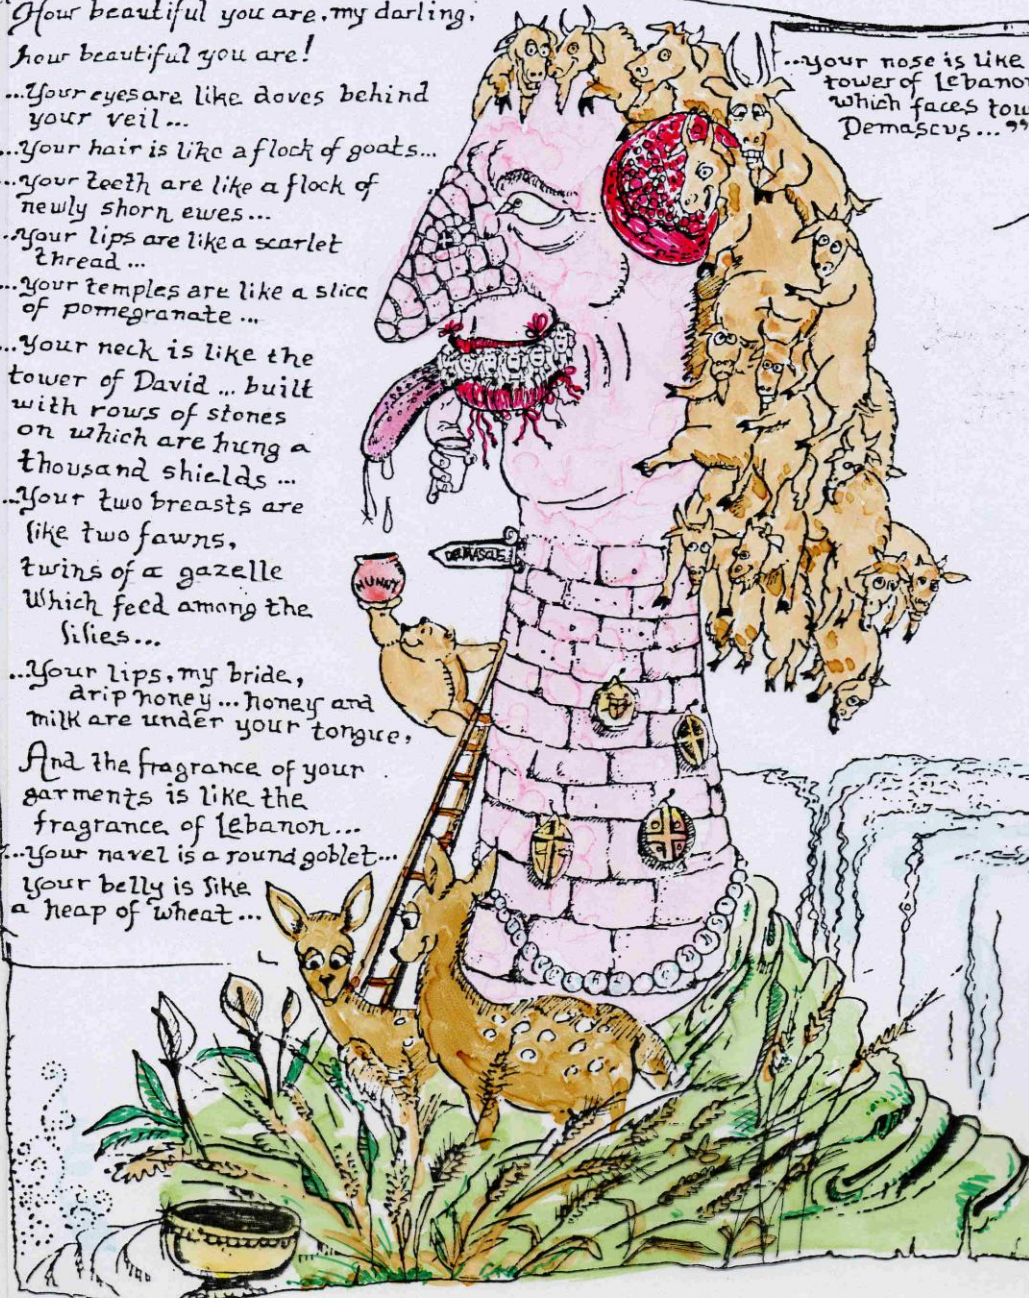 How beautiful you are, my darling,
how beautiful you are!
...Your eyes are like doves behind
your veil...
...Your hair is like a flock of goats...
...Your teeth are like a flock of
newly shorn ewes...
...Your lips are like a scarlet
thread...
...Your temples are like a slice
of pomegranate...
...Your neck is like the
tower of David... built
with rows of stones
on which are hung a
thousand shields...
...Your two breasts are
like two fawns,
twins of a gazelle
Which feed among the
lilies...
...Your lips, my bride,
drip honey... honey and
milk are under your tongue,
And the fragrance of your
garments is like the
fragrance of Lebanon...
...Your navel is a round goblet...
Your belly is like
a heap of wheat...
...your nose is like
tower of Lebano
which faces tow
Demascus..."
DEMASCUS
HUNEY